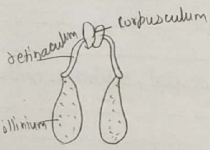 corpusculum
retinaculum
ollinium